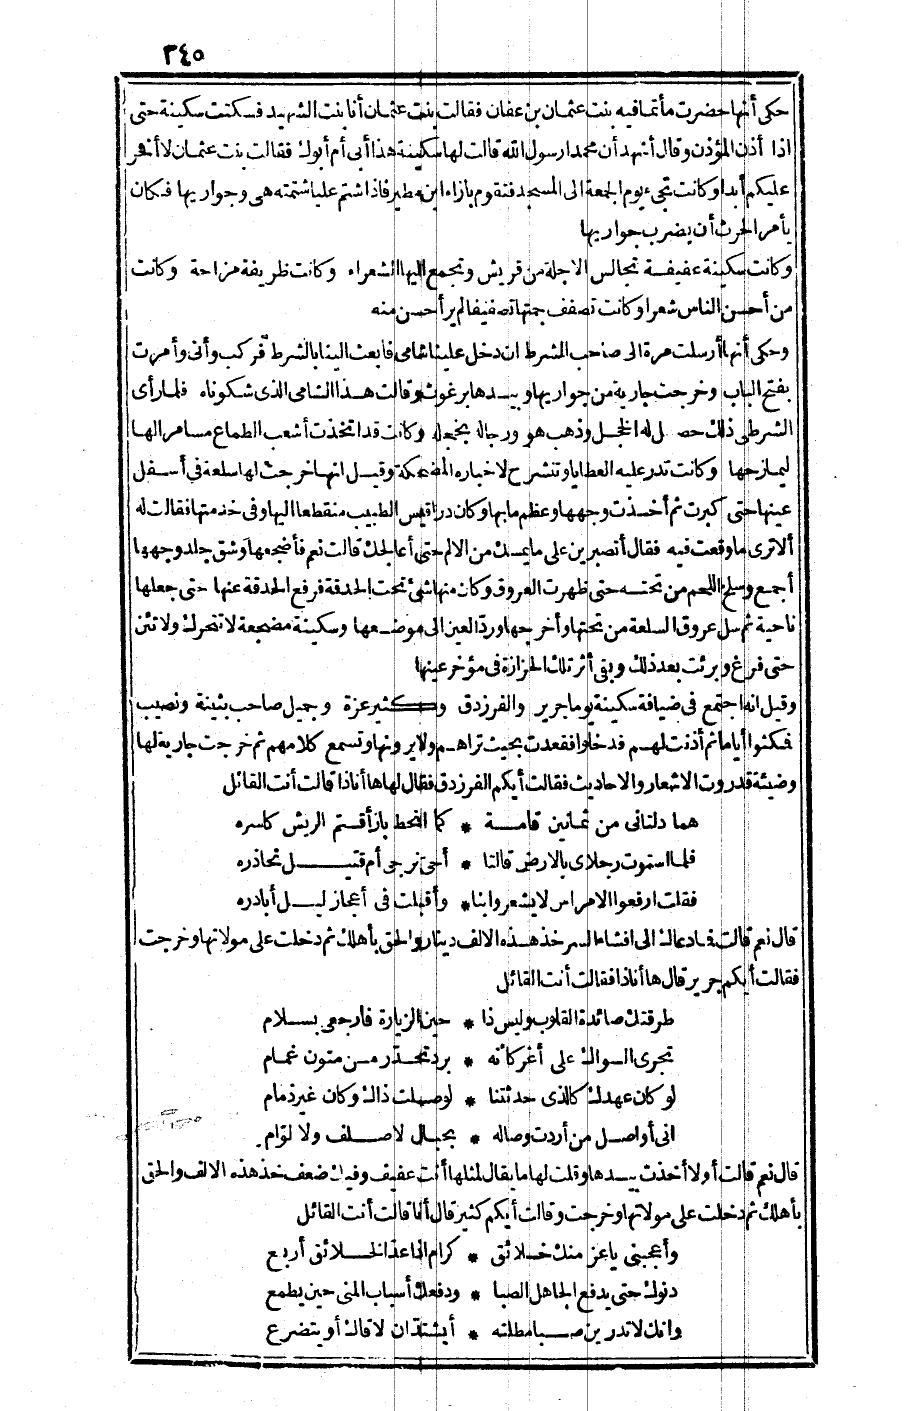 ٢٤٥
حكى أنها حضرت مأتما فيه بنت عثمان بن عفان فقالت بنت عثمان أنا بنت الشهيد فسكتت سكينة حتى
اذا أذن المؤذن وقال أشهد أن محمدا رسول الله قالت لها سكينة هذا أبى أم أبوك فقالت بنت عثمان لا أفخر
عليكم أبدا وكانت تجىء يوم الجمعة الى المسجد فتقوم بازاء ابن مطير فاذا شتم عليا شتمته هى وجواريها فكان
يأمر الحرث أن يضرب جواريها
وكانت سكينة عفيفة تجالس الاجلة من قريش وتجمع اليها الشعراء وكانت ظريفة مزاحة وكانت
من أحسن الناس شعرا وكانت تصفف جمتها تصفيفا لم ير أحسن منه
وحكى أنها أرسلت مرة الى صاحب الشرط ان دخل علينا شامى فابعث الينا بالشرط فركب وأتى وأمرت
بفتح الباب وخرجت جارية من جواريها وبيدها برغوث وقالت هذا الشامى الذى شكوناه فلما رأى
الشرطى ذلك حصل له الخجل وذهب هو ورجاله بخجله وكانت قد اتخذت أشعب الطماع مسامرا لها
ليمازحها وكانت تدر عليه العطايا وتنشرح لاخباره المضحكة وقيل انها خرجت لها سلعة فى أسفل
عينها حتى كبرت ثم أخذت وجهها وعظم ما بها وكان دراقيس الطبيب منقطعا اليها وفى خدمتها فقالت له
ألا ترى ما وقعت فيه فقال أتصبرين على ما يمسك من الالم حتى أعالجك قالت نعم فأضجعها وشق جلد وجهها
أجمع وسلخ اللحم من تحته حتى ظهرت العروق وكان منها شئ تحت الحدقة فرفع الحدقة عنها حتى جعلها
ناحية ثم سل عروق السلعة من تحتها وأخرجها ورد العين الى موضعها وسكينة مضجعة لا تتحرك ولا تئن
حتى فرغ وبرئت بعد ذلك وبقى أثر تلك الحزازة فى مؤخر عينها
وقيل انه اجتمع فى ضيافة سكينة يوما جرير والفرزدق وكثير عزة وجميل صاحب بثينة ونصيب
فمكثوا أياما ثم أذنت لهم فدخلوا فقعدت بحيث تراهم ولا يرونها وتسمع كلامهم ثم خرجت جارية لها
وضيئة قد روت الاشعار والاحاديث فقالت أيكم الفرزدق فقال لها ها أنا ذا قالت أنت القائل
هما دلتانى من ثمانين قامة * كما انحط باز أقتم الريش كاسره
فلما استوت رجلاى بالارض قالتا * أحى نرجى أم قتيل نحاذره
فقلت ارفعوا الامراس لا يشعروا بنا * وأقبلت فى أعجاز ليل أبادره
قال نعم قالت فما دعاك الى افشاء السر خذ هذه الالف دينار والحق بأهلك ثم دخلت على مولاتها وخرجت
فقالت أيكم جرير قال ها أنا ذا فقالت أنت القائل
طرقتك صائدة القلوب وليس ذا * حين الزيارة فارجعى بسلام
تجرى السواك على أغر كأنه * برد تحدر من متون غمام
لو كان عهدك كالذى حدثتنا * لوصلت ذاك وكان غير ذمام
انى أواصل من أردت وصاله * بحبال لا صلف ولا لوّام
قال نعم قالت أولا أخذت بيدها وقلت لها ما يقال لمثلها أنت عفيف وفيك ضعف خذ هذه الالف والحق
بأهلك ثم دخلت على مولاتها وخرجت وقالت أيكم كثير قال أنا قالت أنت القائل
وأعجبنى ياعز منك خلائق * كرام اذا عد الخلائق أربع
دنوك حتى يدفع الجاهل الصبا * ودفعك أسباب المنى حين يطمع
وانك لا تدرين صبا مطلته * أيشتد ان لاقاك أو يتضرع